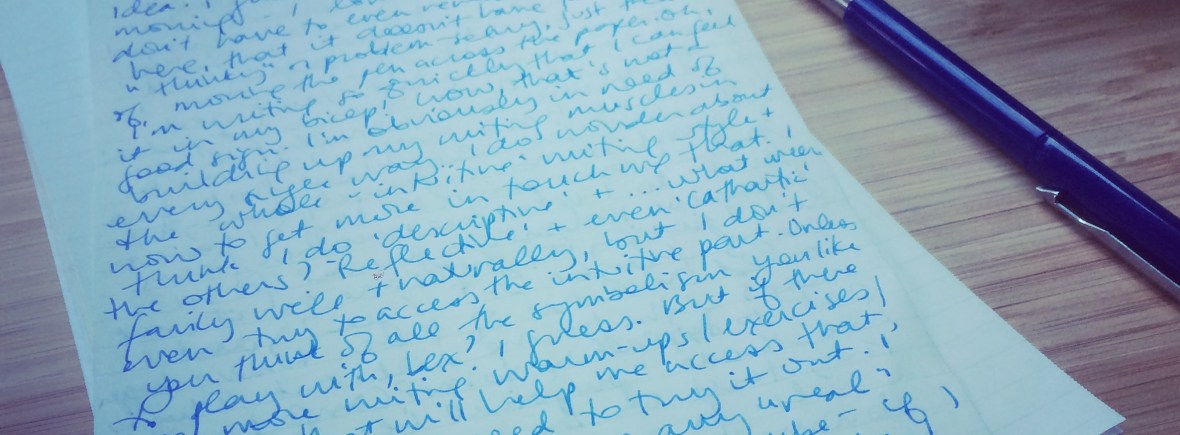 idea. I
morning I
don't have to even
here, that it doesn't have
"thinky" a problem
of moving the pen across the paper. Oh,
I'm writing so quickly that I can feel
it in my bicep! now that's not a
good sign. I'm obviously in need of
building up my writing muscles in
every way. I do wonder about
the whole 'intuitive' writing style +
how to get more in touch w/ that. I
think I do 'descriptive' + ... what were
the others? Reflective! + even 'cathartic'
fairly well + naturally, but I don't
even try to access the intuitive part. Unless
you think of all the symbolism you like
to play with, Lex? I guess. But if there
more writing warm-ups / exercises /
that will help me access that,
need to try it out. I
any unreal
maybe - if